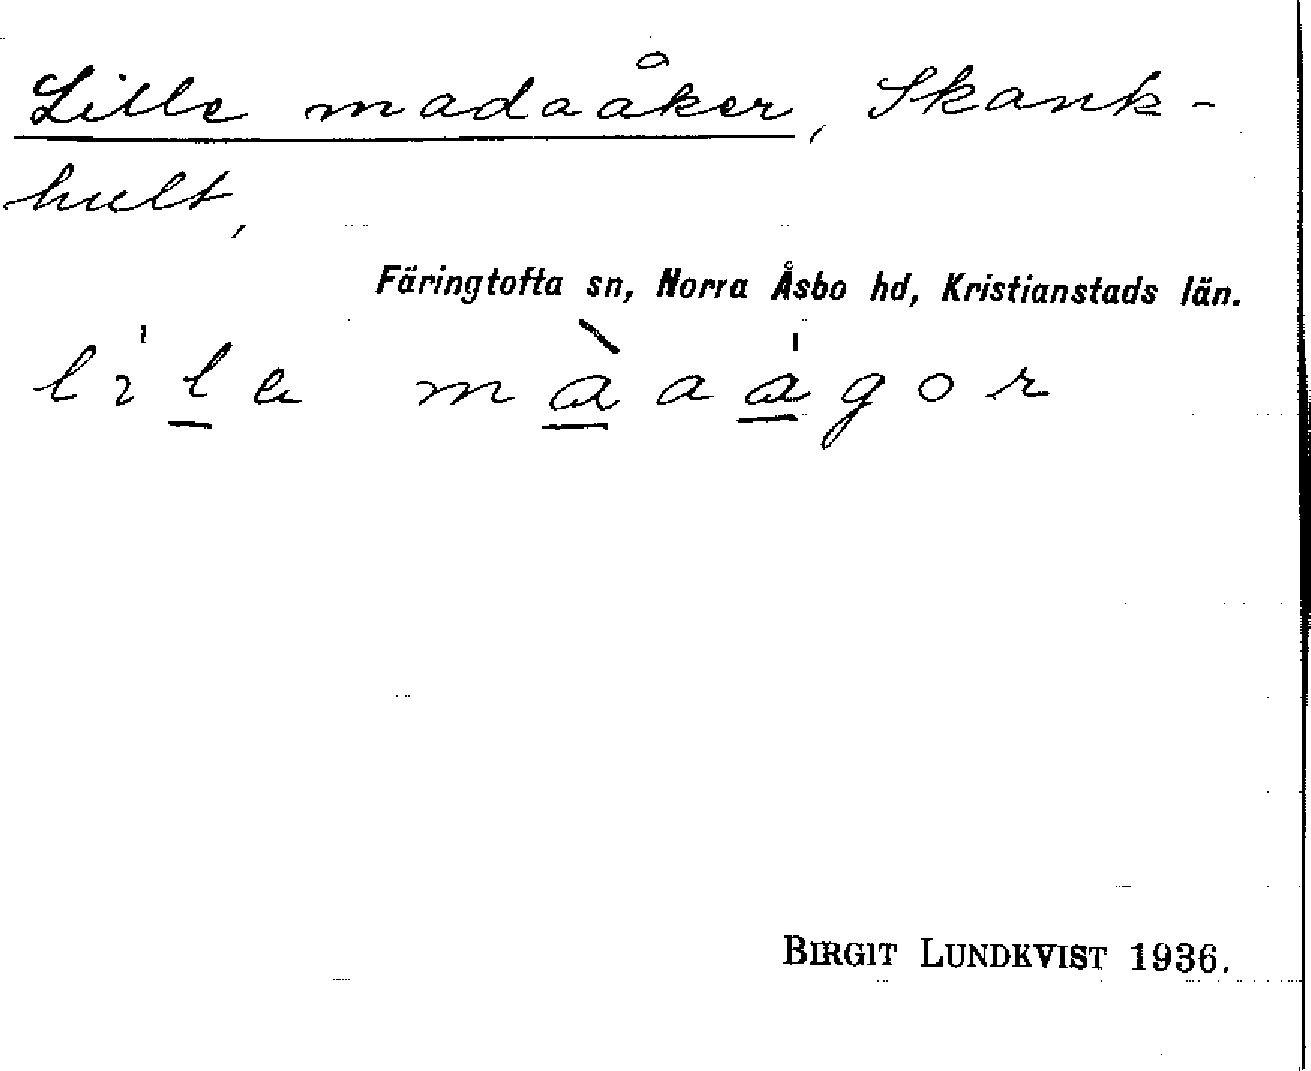 Lille madaåker, Skank-
hult,
Färingtofta sn, Norra Åsbo hd, Kristianstads län.
li'la màaágor
BIRGIT LUNDKVIST 1936.